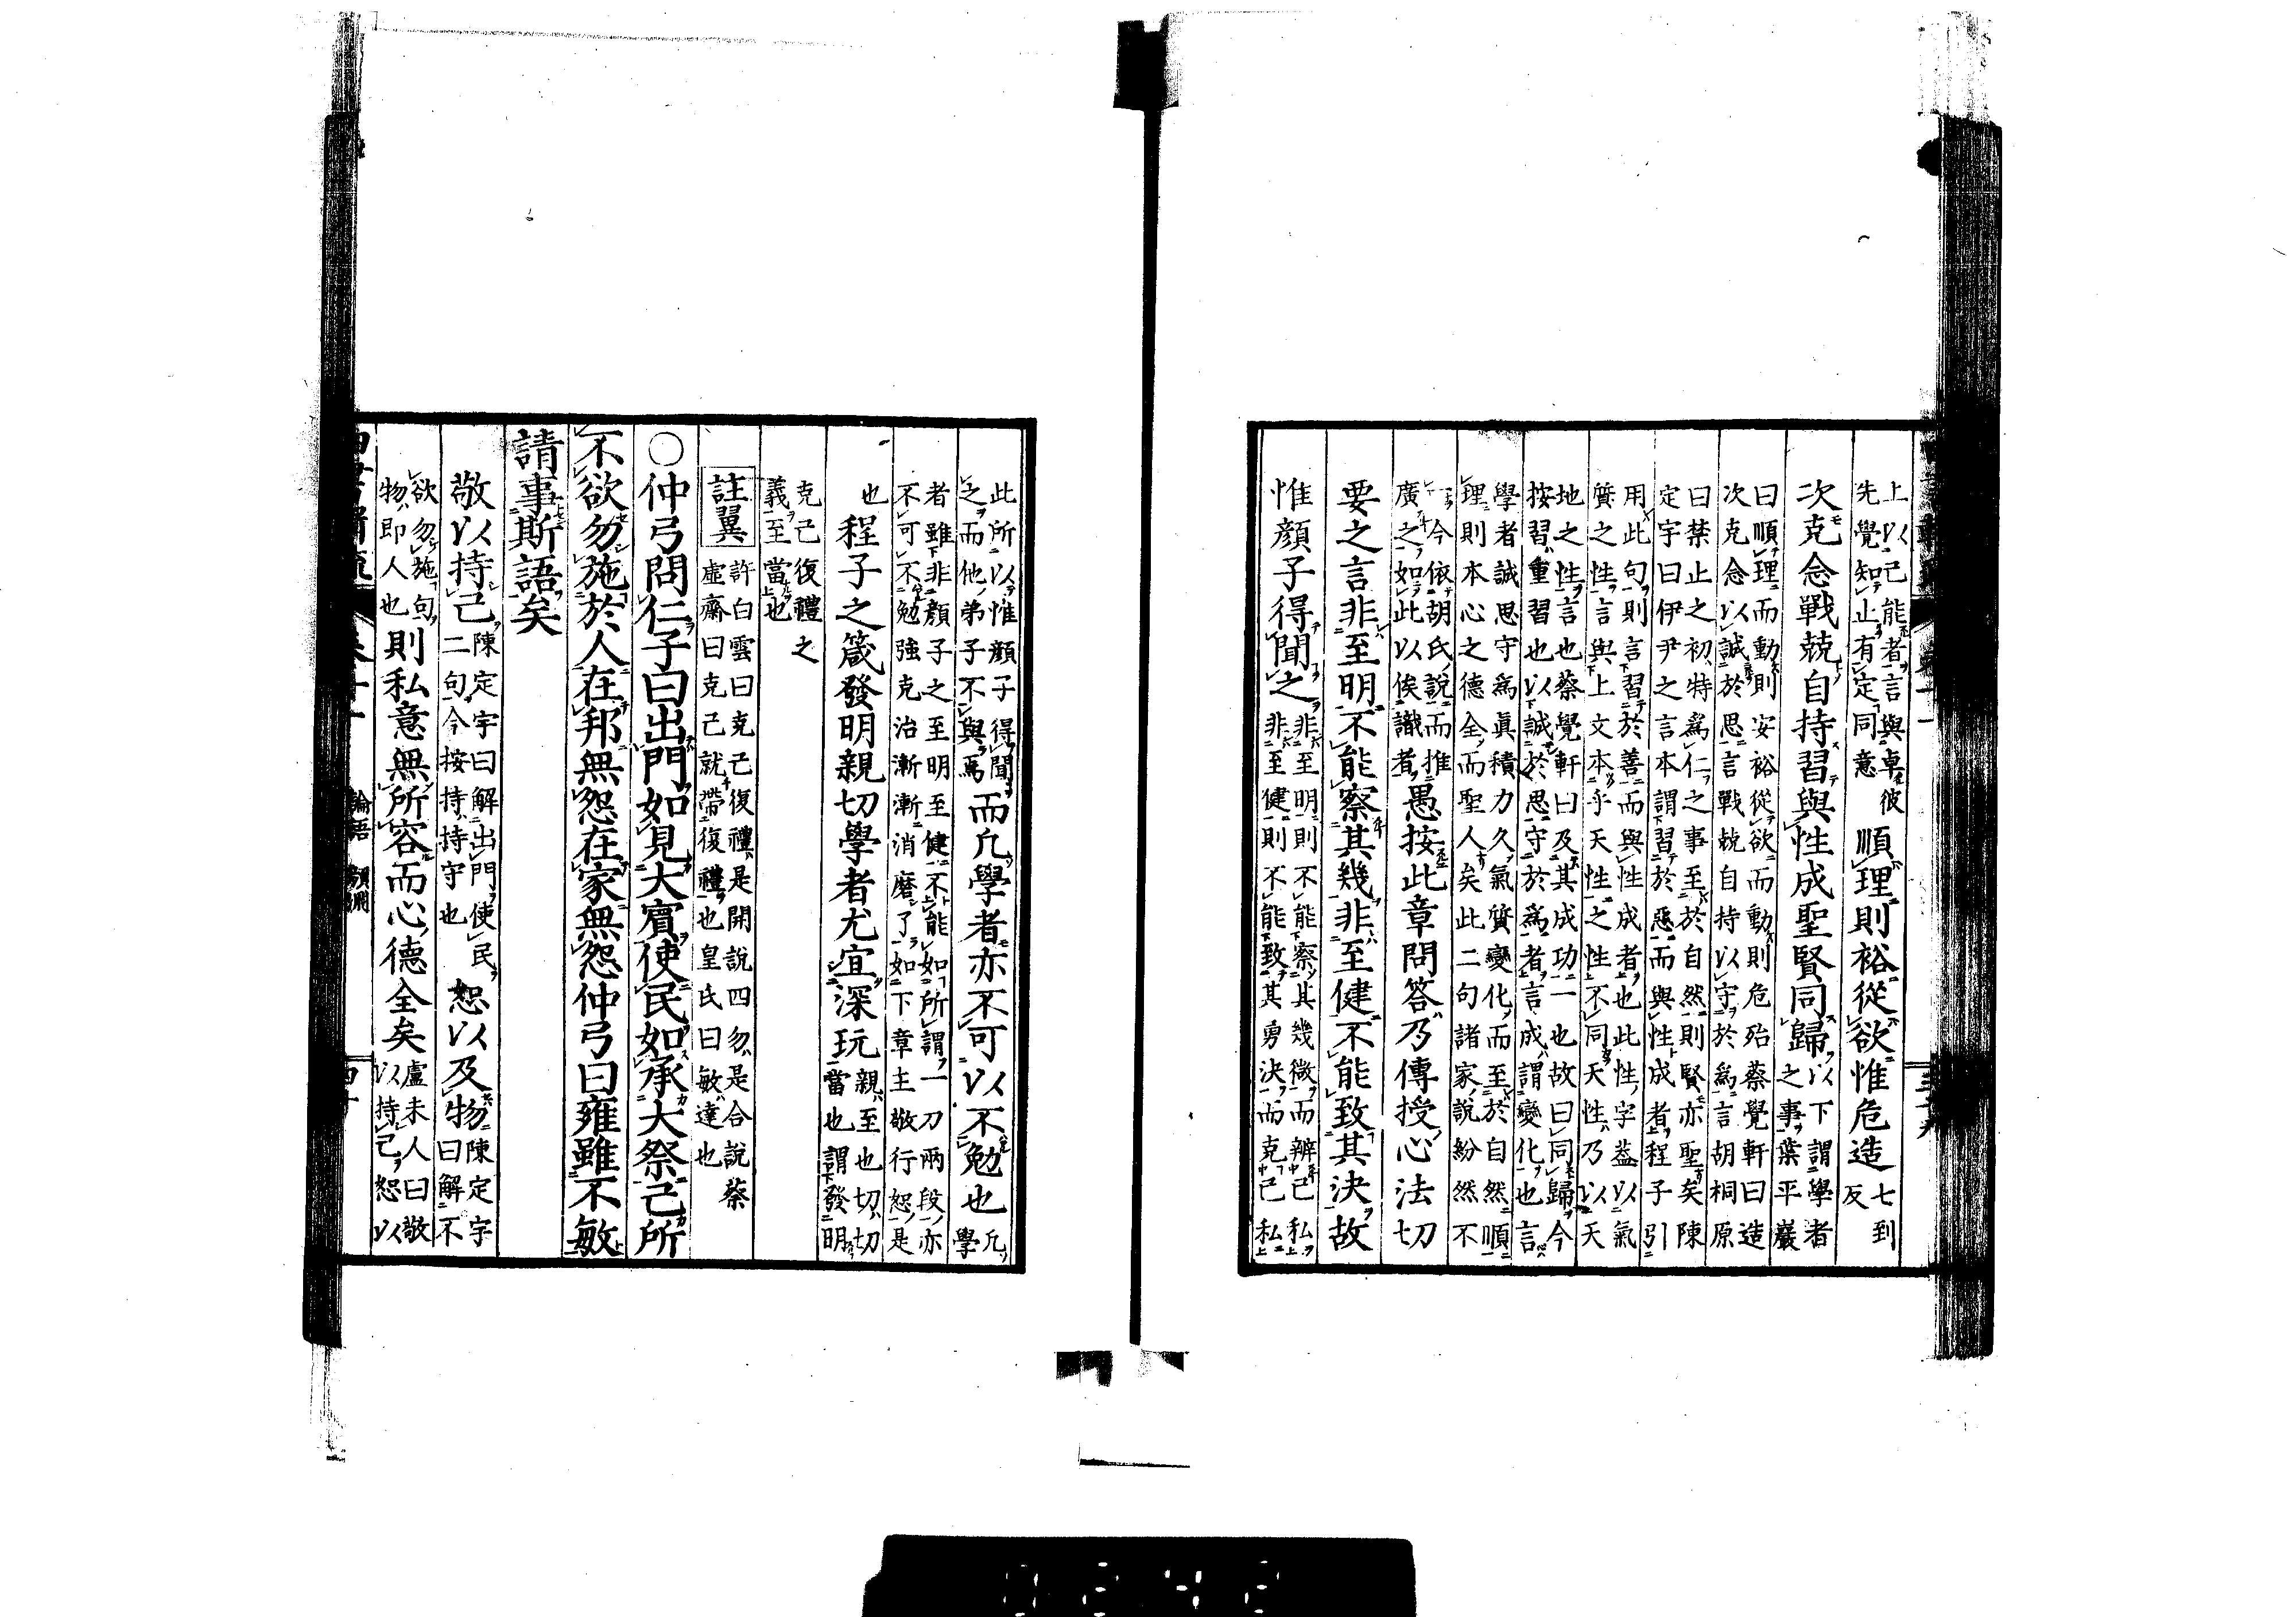 上以己能者言與卓彼
先覺知止有定同意
順理則裕從欲惟危造
七到
反
曰順理而動則安裕從欲而動則危殆蔡覺軒曰造
次克念以誠於思言戰兢自持以守於爲言胡桐原
次克念戰兢自持習與性成聖賢同歸
以下謂學者
之事葉平巖
曰禁止之初特爲仁之事至於自然則賢亦聖矣陳
定宇曰伊尹之言本謂習於惡而與性成者程子引
用此句則言習於善而與性成者也此性字蓋以氣
質之性言與上文本乎天性之性不同天性乃以天
地之性言也蔡覺軒曰及其成功一也故曰同歸今
按習重習也以誠於思守於爲者言成謂變化也言
學者誠思守爲眞積力久氣質變化而至於自然順
理則本心之德全而聖人矣此二句諸家說紛然不
一今依胡氏說而推
廣之如此以俟識者
愚按此章問答乃傳授心法切
要之言非至明不能察其幾非至健不能致其決故
惟顏子得聞之
非至明則不能察其幾微而辨己私
非至健則不能致其勇決而克己私
此所以惟顏子得聞
之而他弟子不與焉
而凡學者亦不可以不勉也
凡
學
者雖非顏子之至明至健不能如所謂一刀兩段亦
不可不勉強克治漸漸消磨了如下章主敬行恕是
也
程子之箴發明親切學者尤宜深玩
親至也切切
當也謂發明
克己復禮之
義至當也
註翼
許白雲曰克己復禮是開說四勿是合說蔡
虛齋曰克己就帶復禮也皇氏曰敏達也
○仲弓問仁子曰出門如見大賓使民如承大祭己所
不欲勿施於人在邦無怨在家無怨仲弓曰雍雖不敏
請事斯語矣
敬以持己
陳定宇曰解出門使民
二句今按持持守也
恕以及物
陳定宇
曰解不
欲勿施句
物即人也
則私意無所容而心德全矣
盧未人曰敬
以持己恕以
論語 顏淵